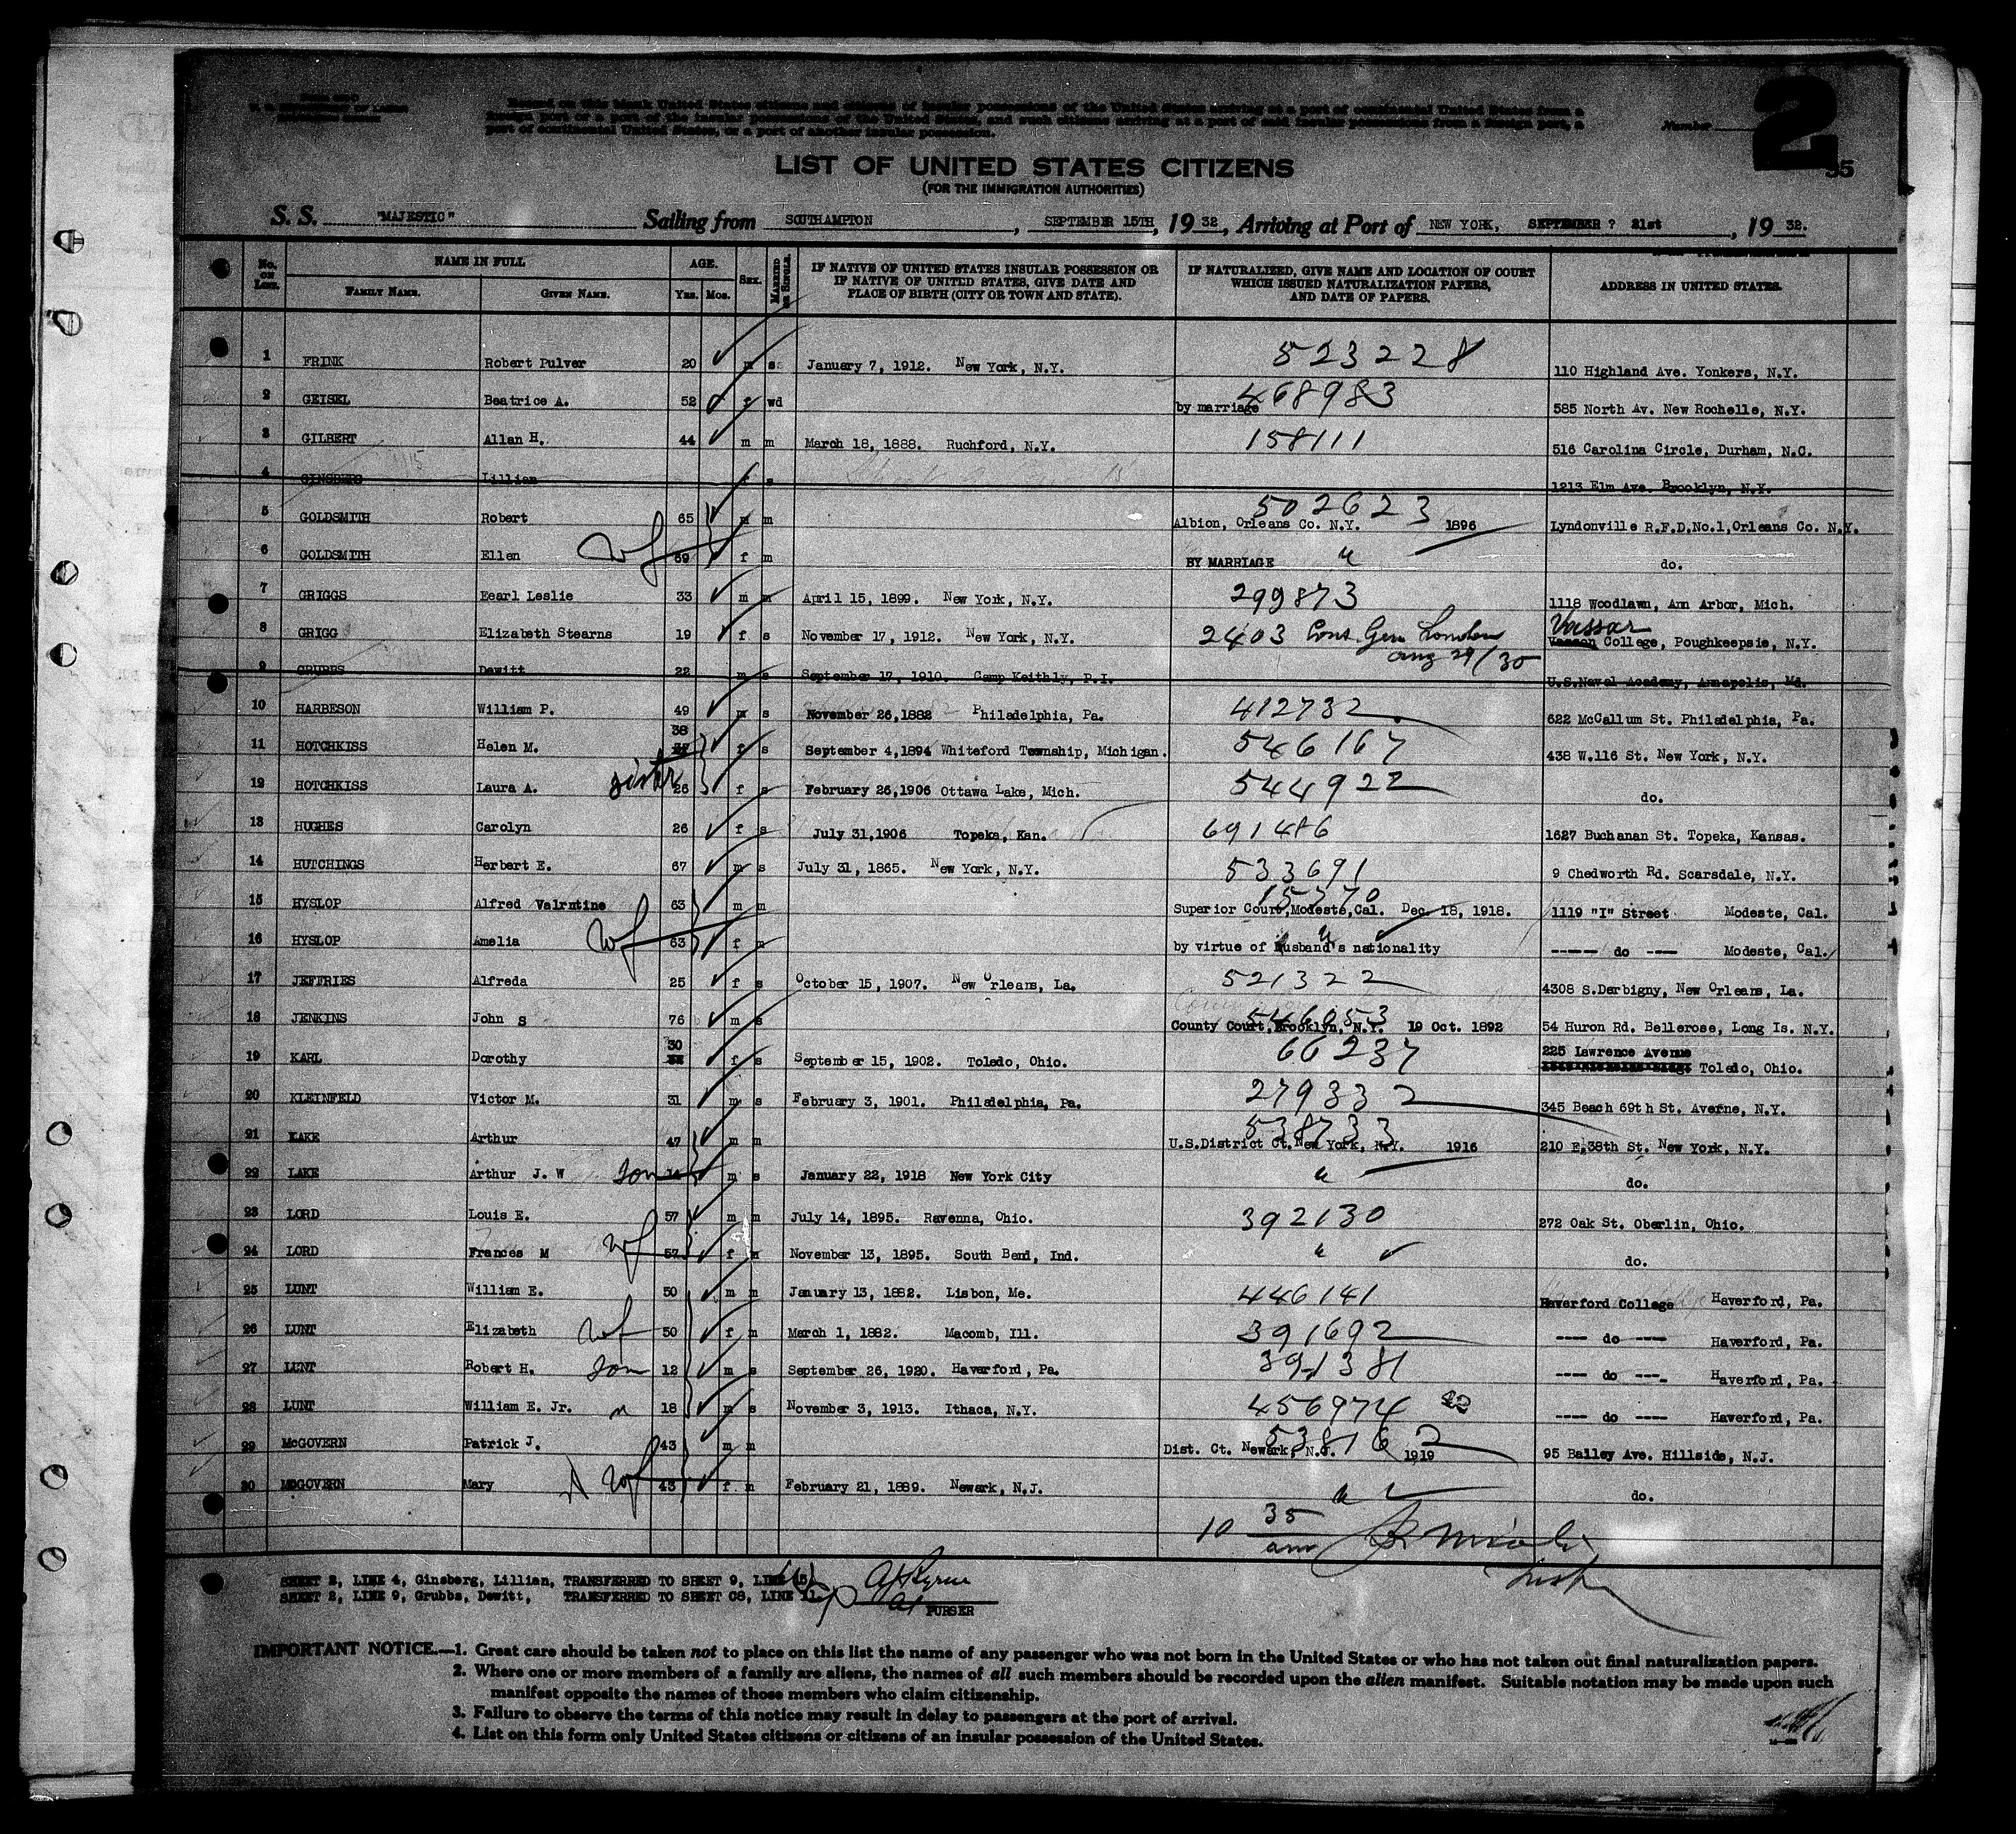 Number
2
95
LIST OF UNITED STATES CITIZENS
(FOR THE IMMIGRATION AUTHORITIES)
S. S. "MAJESTIC" Sailing from SOUTHAMPTON, SEPTEMBER 15TH, 1932, Arriving at Port of NEW YORK, SEPTEMBER ? 21st, 1932.
No. ON LIST. NAME IN FULL FAMILY NAME. GIVEN NAME. AGE. YRS. MOS. SEX. MARRIED OR SINGLE. IF NATIVE OF UNITED STATES INSULAR POSSESSION OR IF NATIVE OF UNITED STATES, GIVE DATE AND PLACE OF BIRTH (CITY OR TOWN AND STATE). IF NATURALIZED, GIVE NAME AND LOCATION OF COURT WHICH ISSUED NATURALIZATION PAPERS, AND DATE OF PAPERS. ADDRESS IN UNITED STATES.
1 FRINK Robert Pulver 20 m s January 7, 1912. New York, N.Y. 523228 110 Highland Ave. Yonkers, N.Y.
2 GEISEL Beatrice A. 52 f wd by marriage 468983 585 North Av. New Rochelle, N.Y.
3 GILBERT Allan H. 44 m m March 18, 1888. Ruchford, N.Y. 158111 516 Carolina Circle, Durham, N.C.
4 GINSBERG Lillian f s 1213 Elm Ave. Brooklyn, N.Y.
5 GOLDSMITH Robert 65 m m 502623 Albion, Orleans Co. N.Y. 1896 Lyndonville R.F.D.No.1,Orleans Co. N.Y.
6 GOLDSMITH Ellen wf 69 f m BY MARRIAGE " do.
7 GRIGGS Eearl Leslie 33 m m April 15, 1899. New York, N.Y. 299873 1118 Woodlawn, Ann Arbor, Mich.
8 GRIGG Elizabeth Stearns 19 f s November 17, 1912. New York, N.Y. 2403 Cons Gen London Aug 29/30 Vassar College, Poughkeepsie, N.Y.
9 GRUBBS Dewitt 22 m s September 17, 1910. Camp Keithly, P.I. U.S.Naval Academy, Annapolis, Md.
10 HARBESON William P. 49 m s November 26,1882 Philadelphia, Pa. 412732 622 McCallum St. Philadelphia, Pa.
11 HOTCHKISS Helen M. 38 f s September 4,1894 Whiteford Township, Michigan. 546167 438 W.116 St. New York, N.Y.
12 HOTCHKISS Laura A. sister 26 f s February 26,1906 Ottawa Lake, Mich. 544922 do.
13 HUGHES Carolyn 26 f s July 31,1906 Topeka, Kan. 691486 1627 Buchanan St. Topeka, Kansas.
14 HUTCHINGS Herbert E. 67 m s July 31, 1865. New York, N.Y. 533691 9 Chedworth Rd. Scarsdale, N.Y.
15 HYSLOP Alfred Valrntine 63 m m 15770 Superior Court,Modesto,Cal. Dec. 18, 1918. 1119 "I" Street Modeste, Cal.
16 HYSLOP Amelia wf 63 f m by virtue of husband's nationality " ---- do ---- Modeste, Cal.
17 JEFFRIES Alfreda 25 f s October 15, 1907. New Orleans, La. 521322 4308 S.Derbigny, New Orleans, La.
18 JENKINS John S 76 m s 546053 County Court,Brooklyn, N.Y. 19 Oct. 1892 54 Huron Rd. Bellerose, Long Is. N.Y.
19 KARL Dorothy 30 f s September 15, 1902. Toledo, Ohio. 66237 225 Lawrence Avenue Toledo, Ohio.
20 KLEINFELD Victor M. 31 m s February 3, 1901. Philadelphia, Pa. 279332 345 Beach 69th St. Averne, N.Y.
21 LAKE Arthur 47 m m 538733 U.S.District Ct.New York, N.Y. 1916 210 E.38th St. New York, N.Y.
22 LAKE Arthur J. W son 14 m s January 22, 1918 New York City " do.
23 LORD Louis E. 57 m m July 14, 1895. Ravenna, Ohio. 392130 272 Oak St. Oberlin, Ohio.
24 LORD Frances M wf 57 f m November 13, 1895. South Bend, Ind. " do.
25 LUNT William E. 50 m m January 13, 1882. Lisbon, Me. 446141 Haverford College Haverford, Pa.
26 LUNT Elizabeth wf 50 f m March 1, 1882. Macomb, Ill. 391692 ---- do ---- Haverford, Pa.
27 LUNT Robert H. son 12 m s September 26, 1920. Haverford, Pa. 391381 ---- do ---- Haverford, Pa.
28 LUNT William E. Jr. " 18 m s November 3, 1913. Ithaca, N.Y. 456974 ---- do ---- Haverford, Pa.
29 McGOVERN Patrick J. 43 m m 538162 Dist. Ct. Newark, N.J. 1919 95 Bailey Ave. Hillside, N.J.
30 McGOVERN Mary wf 43 f m February 21, 1889. Newark, N.J. " do.
10 35 am
SHEET 2, LINE 4, Ginsberg, Lillian, TRANSFERRED TO SHEET 9, LINE
SHEET 2, LINE 9, Grubbs, Dewitt, TRANSFERRED TO SHEET C8, LINE 11.
PURSER
IMPORTANT NOTICE.—1. Great care should be taken not to place on this list the name of any passenger who was not born in the United States or who has not taken out final naturalization papers.
2. Where one or more members of a family are aliens, the names of all such members should be recorded upon the alien manifest. Suitable notation may be made upon such
manifest opposite the names of those members who claim citizenship.
3. Failure to observe the terms of this notice may result in delay to passengers at the port of arrival.
4. List on this form only United States citizens or citizens of an insular possession of the United States.